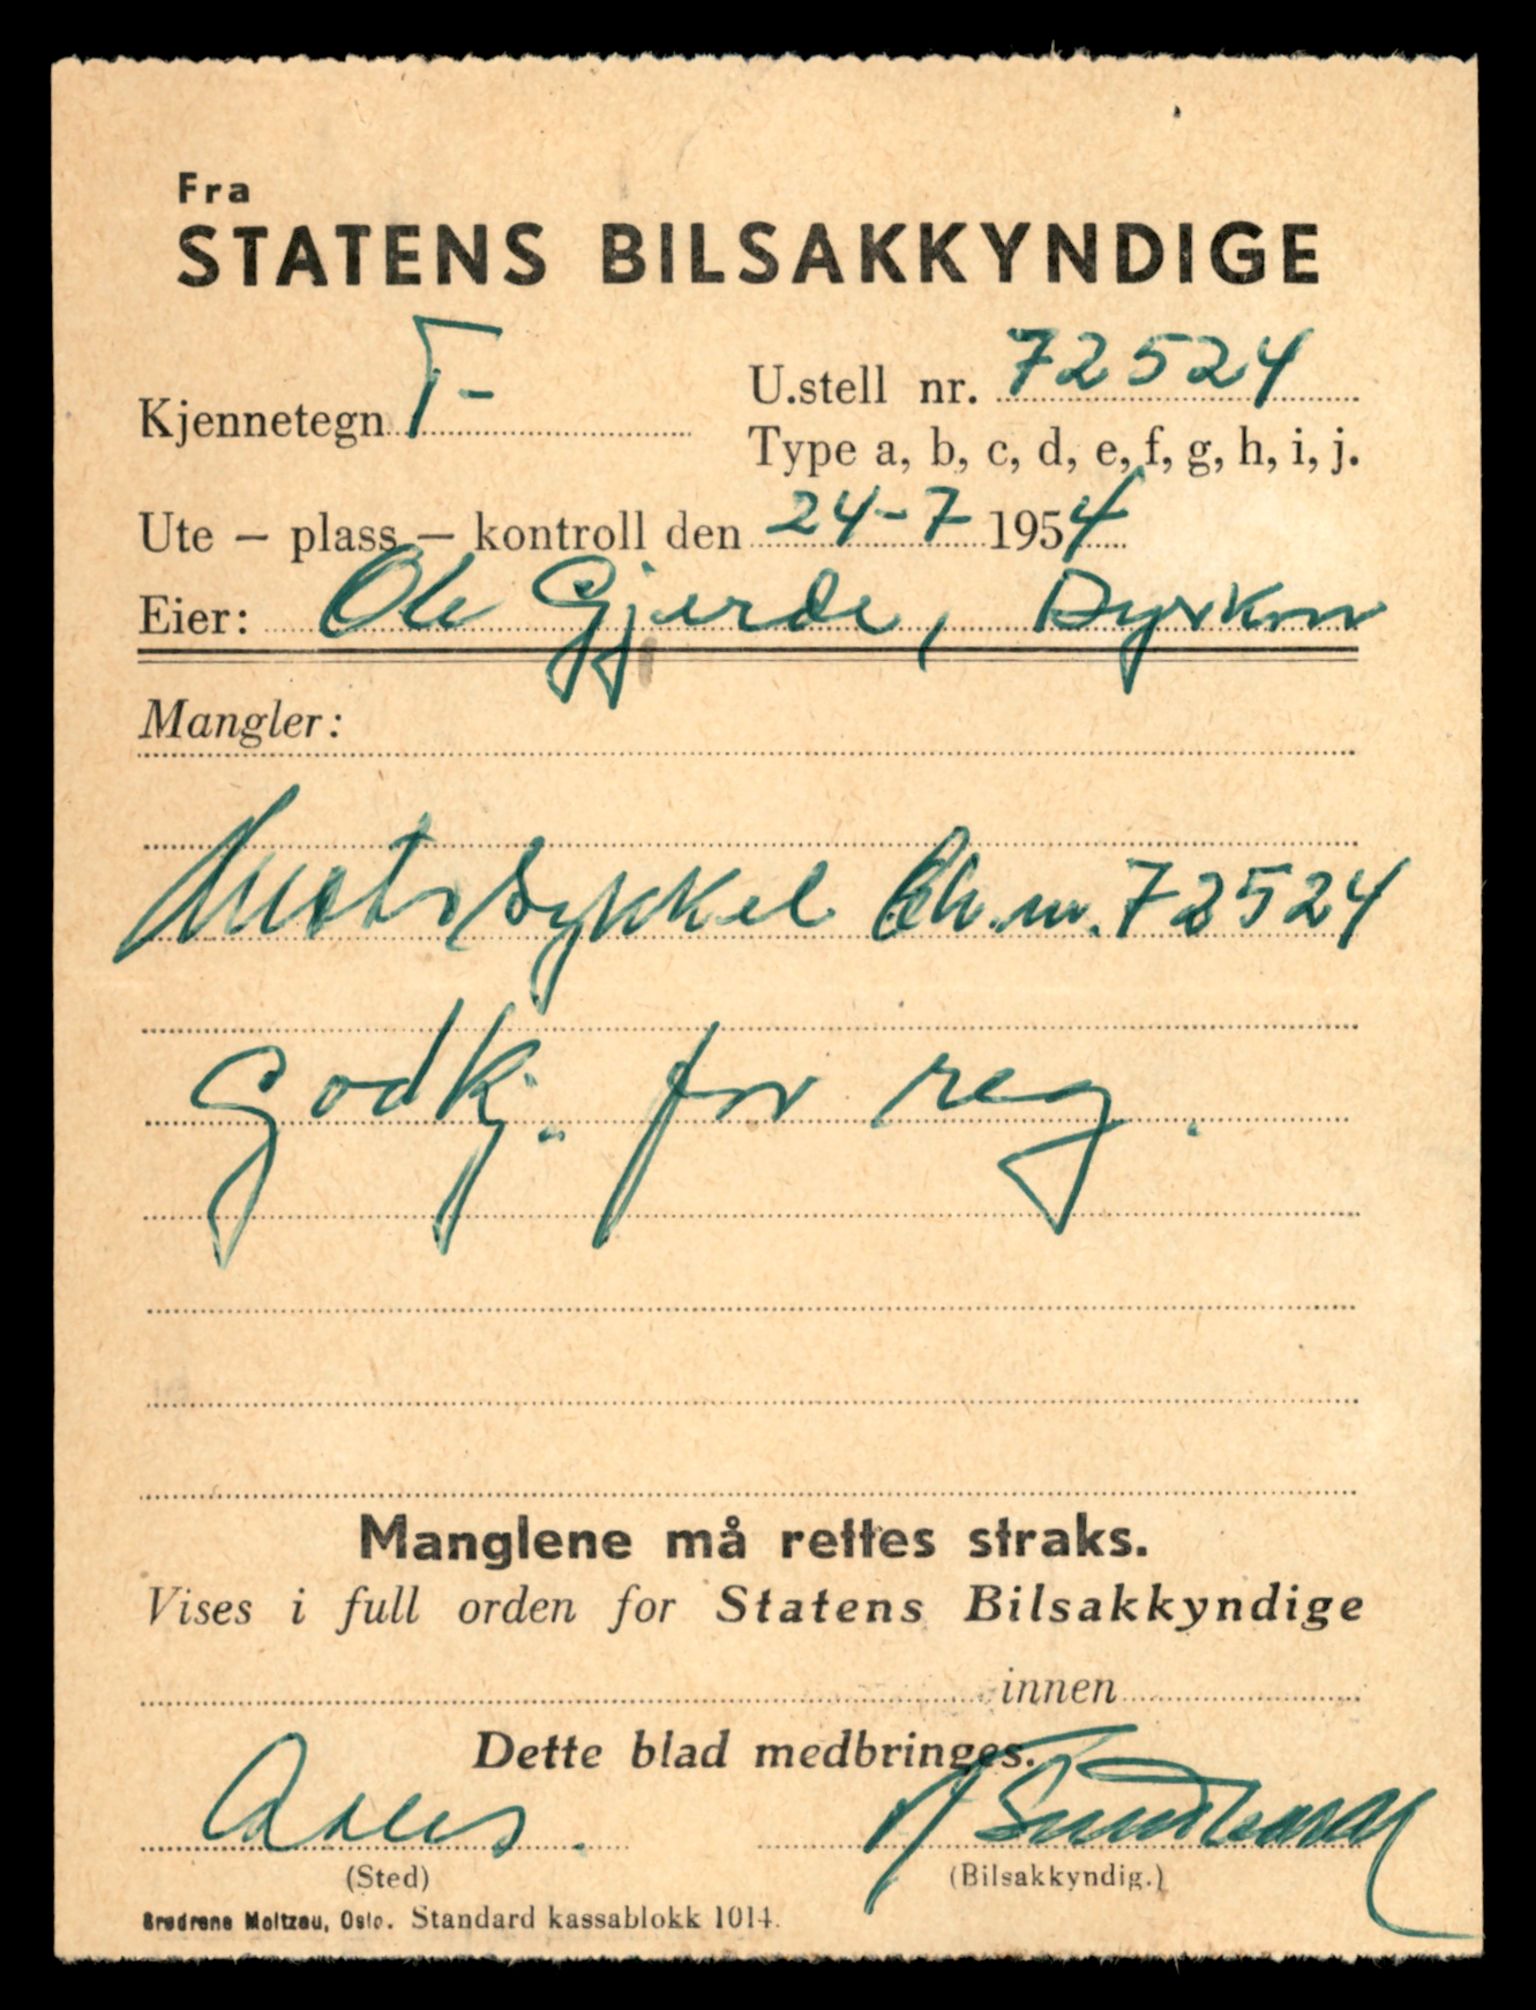 Fra
STATENS BILSAKKYNDIGE
Kjennetegn T-
U.stell nr. 72524
Type a, b, c, d, e, f, g, h, i, j.
Ute – plass – kontroll den 24-7 1954
Eier: Ole Gjerde, Dyrkorn
Mangler:
Motorsykkel Ch.nr. 72524
godkj. for reg.
Manglene må rettes straks.
Vises i full orden for Statens Bilsakkyndige
innen
Dette blad medbringes.
(Sted)
(Bilsakkyndig.)
Brødrene Moltzau, Oslo. Standard kassablokk 1014.